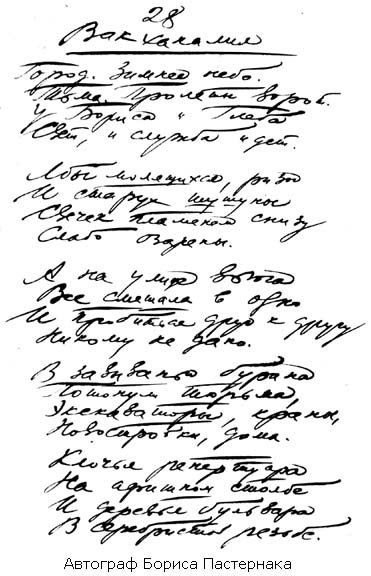 28
Вакханалия
Город. Зимнее небо.
Тьма. Пролеты ворот.
У Бориса и Глеба
Свет, и служба идет.
Лбы молящихся, ризы
И старух шушуны
Свечек пламенем снизу
Слабо озарены.
А на улице вьюга
Все смешала в одно
И пробиться друг к другу
Никому не дано.
В завываньи бурана
Потонули тюрьма,
Экскаваторы, краны,
Новостройки, дома.
Клочья репертуара
На афишном столбе
И деревья бульвара
В серебристой резьбе.
Автограф Бориса Пастернака